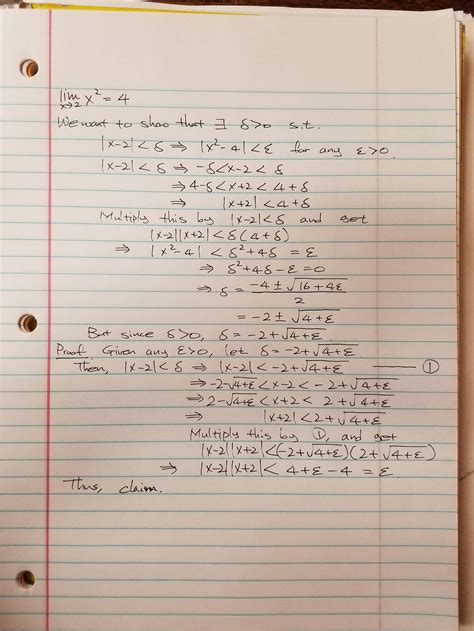 lim x→2 x² = 4
We want to show that ∃ δ>0 s.t.
|x-2|<δ ⇒ |x²-4|<ε for any ε>0.
|x-2|<δ ⇒ -δ<x-2<δ
⇒ 4-δ<x+2<4+δ
⇒ |x+2|<4+δ
Multiply this by |x-2|<δ and get
|x-2||x+2|<δ(4+δ)
⇒ |x²-4|<δ²+4δ=ε
⇒ δ²+4δ-ε=0
⇒ δ = (-4±√(16+4ε))/2
= -2±√(4+ε)
But since δ>0, δ=-2+√(4+ε).
Proof. Given any ε>0, let δ=-2+√(4+ε)
Then, |x-2|<δ ⇒ |x-2|<-2+√(4+ε) —— ①
⇒ 2-√(4+ε)<x-2<-2+√(4+ε)
⇒ 2-√(4+ε)<x+2<2+√(4+ε)
⇒ |x+2|<2+√(4+ε)
Multiply this by ①, and get
|x-2||x+2|<(-2+√(4+ε))(2+√(4+ε))
⇒ |x-2||x+2|<4+ε-4=ε.
Thus, claim.